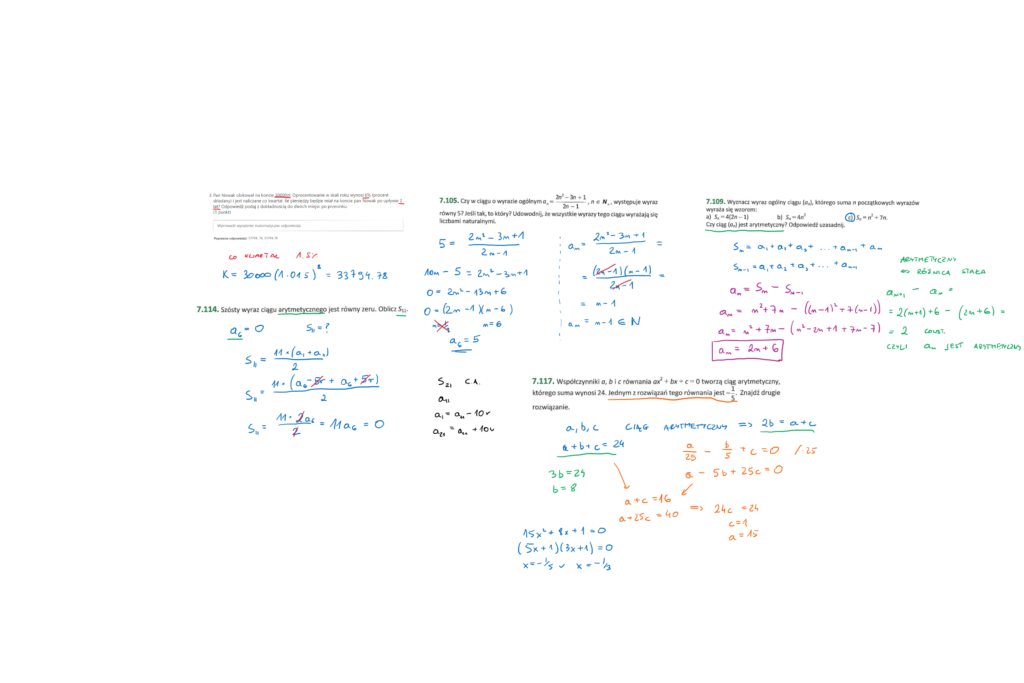 3. Pan Nowak ulokował na koncie 30000zł. Oprocentowanie w skali roku wynosi 6% (procent
składany) i jest naliczane co kwartał. Ile pieniędzy będzie miał na koncie pan Nowak po upływie 2
lat? Odpowiedź podaj z dokładnością do dwóch miejsc po przecinku.
(1 punkt)
Wprowadź wyrażenie matematyczne odpowiedzi
Poprawne odpowiedzi:
CO KWARTAŁ 1.5%
K = 30000 (1.015)^8 = 33794.78
7.114. Szósty wyraz ciągu arytmetycznego jest równy zeru. Oblicz S₁₁.
a₆ = 0 S₁₁ = ?
S₁₁ = 11·(a₁+a₁₁) / 2
S₁₁ = 11·(a₆-5r + a₆+5r) / 2
S₁₁ = 11·2a₆ / 2 = 11a₆ = 0
7.105. Czy w ciągu o wyrazie ogólnym aₙ = (2n² − 3n + 1) / (2n − 1), n ∈ N₊, występuje wyraz
równy 5? Jeśli tak, to który? Udowodnij, że wszystkie wyrazy tego ciągu wyrażają się
liczbami naturalnymi.
5 = (2n² - 3n + 1) / (2n - 1)
10n - 5 = 2n² - 3n + 1
0 = 2n² - 13n + 6
0 = (2n - 1)(n - 6)
n = 6
a₆ = 5
aₙ = (2n² - 3n + 1) / (2n - 1) =
= (2n - 1)(n - 1) / (2n - 1) =
= n - 1
aₙ = n - 1 ∈ N
S₂₁ C.A.
a₁₁
a₁ = a₁₁ - 10r
a₂₁ = a₁₁ + 10r
7.109. Wyznacz wyraz ogólny ciągu (aₙ), którego suma n początkowych wyrazów
wyraża się wzorem:
a) Sₙ = 4(2n − 1) b) Sₙ = 4n² c) Sₙ = n² + 7n.
Czy ciąg (aₙ) jest arytmetyczny? Odpowiedź uzasadnij.
Sₙ = a₁ + a₂ + a₃ + ... + aₙ₋₁ + aₙ
Sₙ₋₁ = a₁ + a₂ + a₃ + ... + aₙ₋₁
aₙ = Sₙ - Sₙ₋₁
aₙ = n² + 7n - ((n-1)² + 7(n-1))
aₙ = n² + 7n - (n² - 2n + 1 + 7n - 7)
aₙ = 2n + 6
ARYTMETYCZNY
⇔ RÓŻNICA STAŁA
aₙ₊₁ - aₙ =
= 2(n+1) + 6 - (2n+6) =
= 2 CONST.
CZYLI aₙ JEST ARYTMETYCZNY
7.117. Współczynniki a, b i c równania ax² + bx + c = 0 tworzą ciąg arytmetyczny,
którego suma wynosi 24. Jednym z rozwiązań tego równania jest −1/5. Znajdź drugie
rozwiązanie.
a, b, c CIĄG ARYTMETYCZNY => 2b = a + c
a + b + c = 24
3b = 24
b = 8
a/25 - b/5 + c = 0 /·25
a - 5b + 25c = 0
a + c = 16
a + 25c = 40
=> 24c = 24
c = 1
a = 15
15x² + 8x + 1 = 0
(5x + 1)(3x + 1) = 0
x = -1/5 ∨ x = -1/3